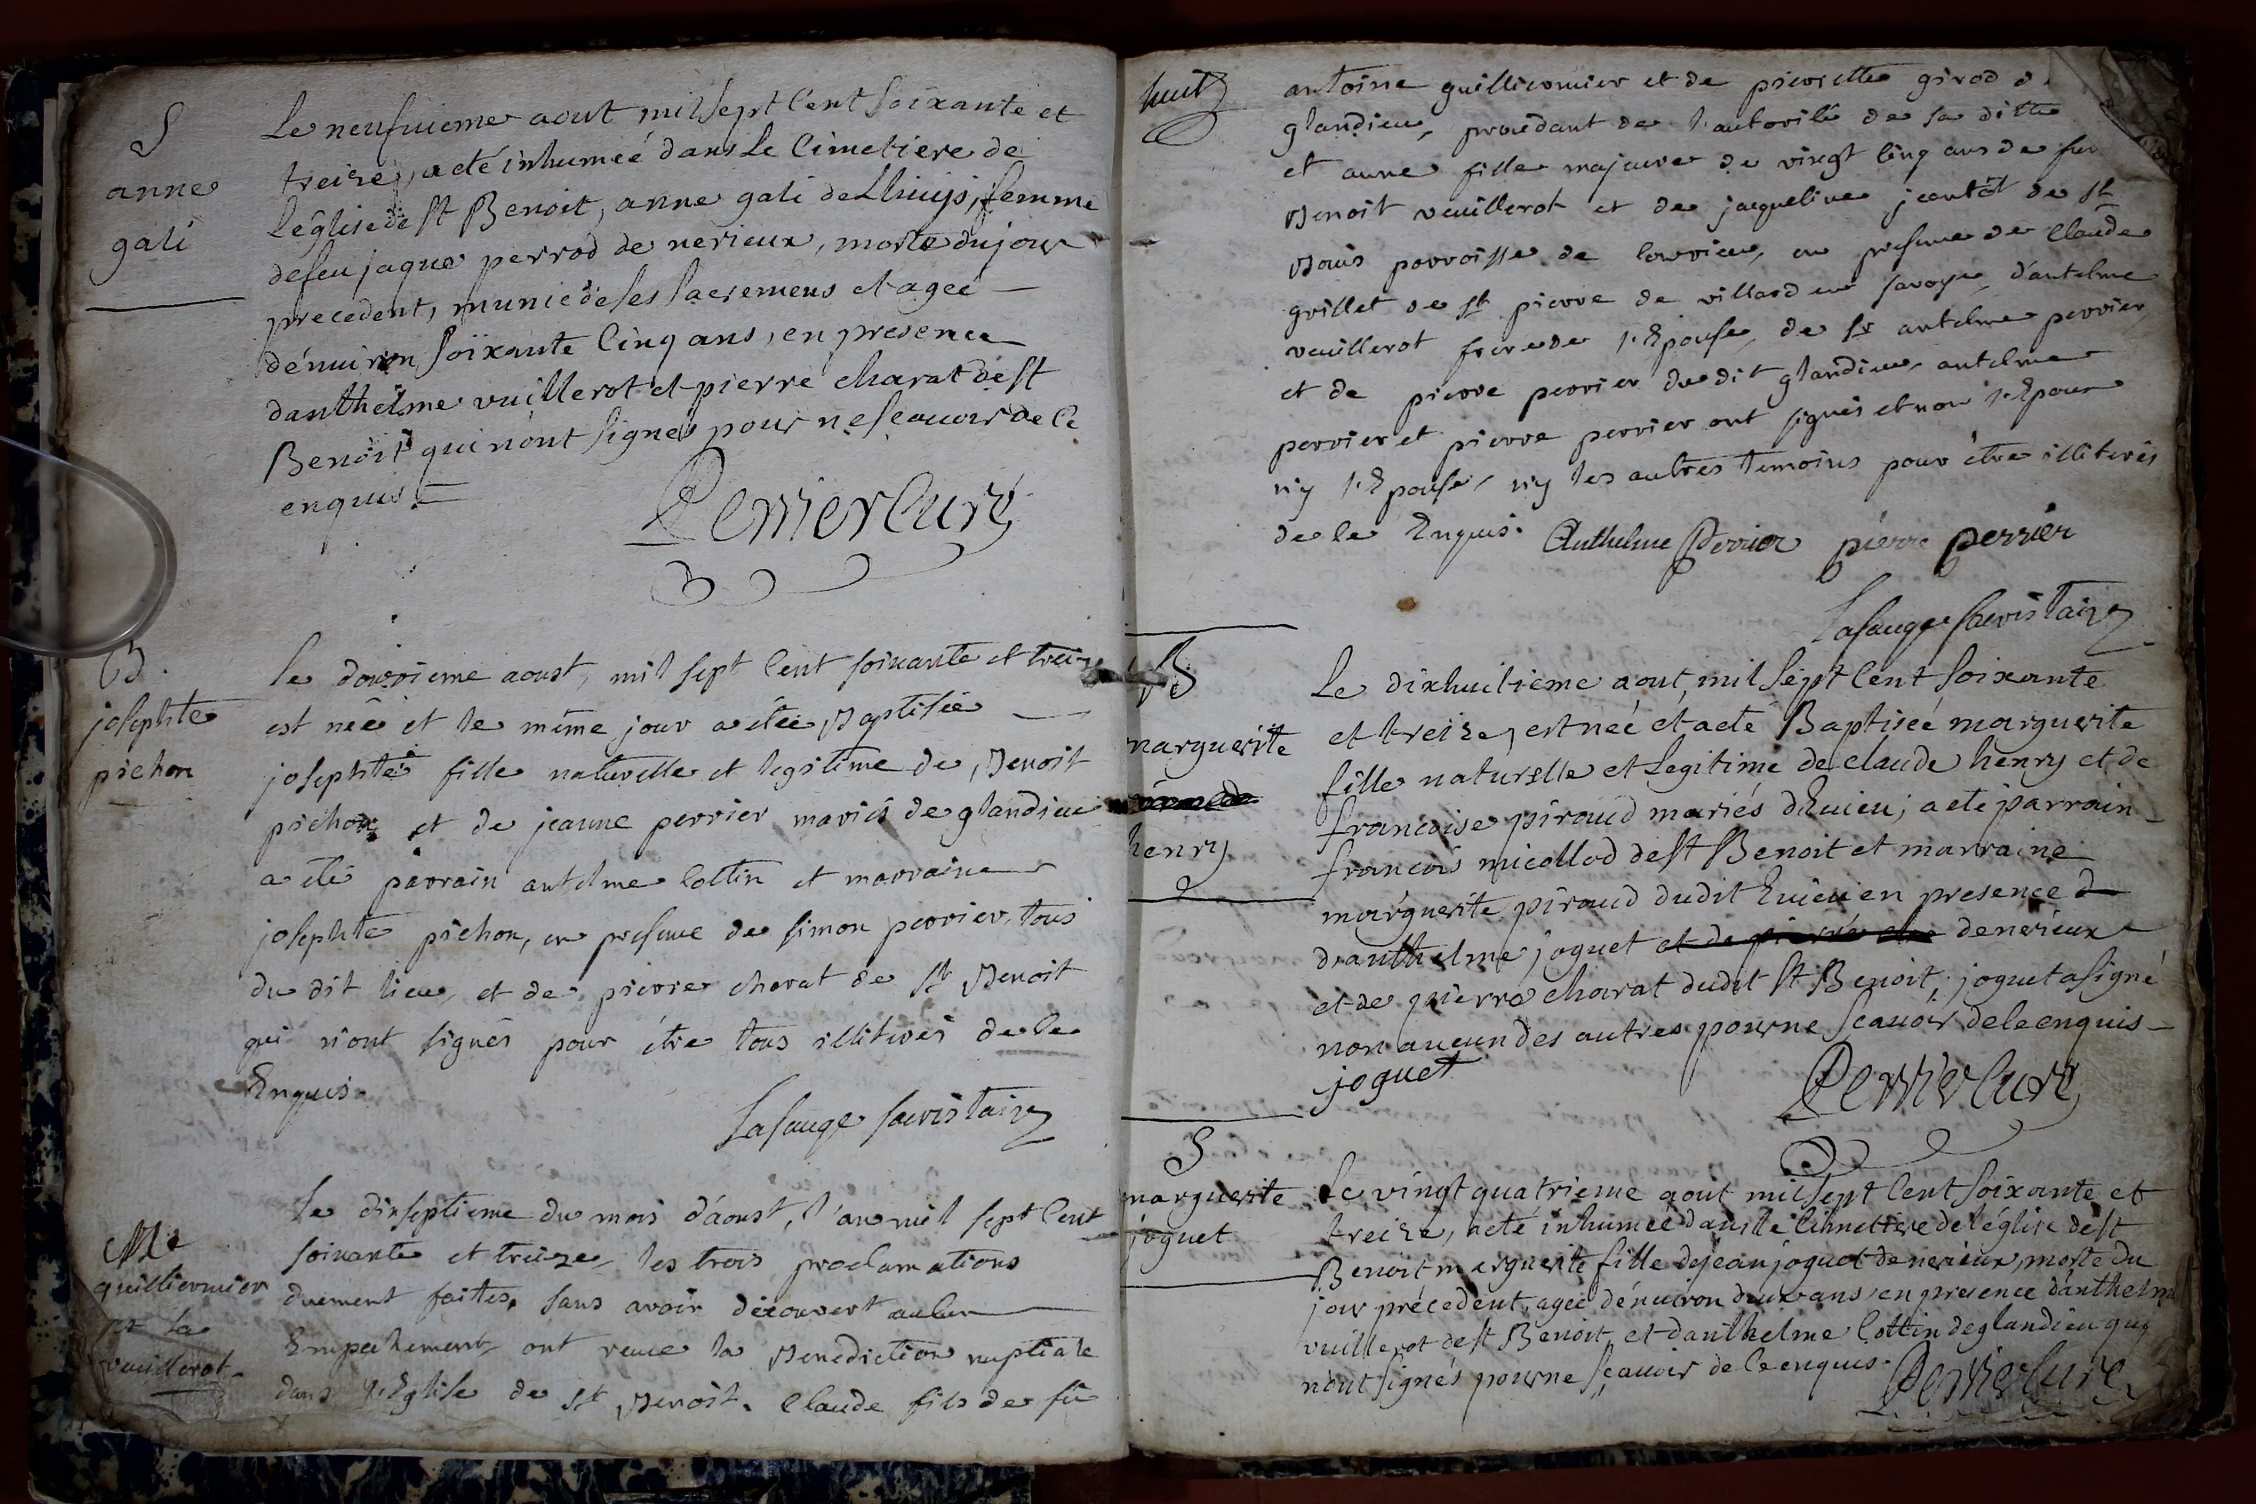 S
anne
gali
Le neufuieme aout mil sept Cent soixante et
treize, a eté inhumeé dans Le Cimetiere de
l'église de st Benoit, anne gali de Lhuijs, femme
de feu jaque perrod de nerieux, morte du jour
precedent, munie de ses sacremens et agee
d'enuiron soixante Cinq ans, en presence
danthelme vuillerot et pierre charat de st
Benoit qui n'ont signés pour ne scauoir de Ce
enquis
Perrier Curé
B.
josephte
pichon
le douzieme aoust, mil sept Cent soixante et treize
est née et le même jour a étée Baptisée
josephte fille naturelle et legitime de Benoit
pichon et de jeanne perrier mariés de glandieu
a été parrain antelme Cottin et marraine
josephte pichon, en presence de simon perrier, tous
du dit lieu, et de pierre charat de st Benoit
qui n'ont signés pour être tous illiterés de Ce
Enquis
Lasauge sacristain
Me
guilliermier
et la
veuillerot
Le dixseptieme du mois d'aoust, l'an mil sept Cent
soixante et treize, les trois proclamations
duement faites, sans avoir découvert aucun
Empechement, ont reçue la Benediction nuptiale
dans l'Eglise de st Benoit. Claude fils de fû
huit
antoine guilliermier et de pierrette girod d
glandieu, procedant de l'autorité de sa ditte
et anne fille majeure de vingt Cinq ans de fu
Benoit veuillerot et de jacqueline jeantôt de st
Bois parroisse de Courrieu, en presence de Claude
grillet de st pierre de villard en savoye, d'antelme
veuillerot frere de l'Epouse, de sr antelme perrier,
et de pierre perrier du dit glandieu, antelme
perrier et pierre perrier ont signés et non l'Epoux
n'y l'Epouse, n'y les autres temoins pour être illiterés
de Ce Enquis. Anthelme Perrier pierre perrier
Lasauge sacristain
B
marguerite
henry
Le dixhuitieme aout, mil sept Cent soixante
et treize, est neé et a eté Baptiseé marguerite
fille naturelle et Legitime de claude henry et de
francoise piraud mariés d'Evieu; a eté parrain
francois micollod de st Benoit et marraine
marguerite piraud dudit Evieu en presence d
d'anthelme joguet et de pierre de nerieux
et de pierre charat dudit st Benoit, joguet a signé
non aucun des autres pour ne scauoir de Ce enquis
joguet
Perrier Curé
S
marguerite
joguet
Le vingt quatrieme aout mil sept Cent soixante et
treize, a eté inhumeé dans le Cimetiere de l'église de st
Benoit marguerite fille de jean joguet de nerieux, morte du
jour précedent, agée d'enuiron deux ans, en presence d'anthelme
vuillerot de st Benoit et danthelme Cottin de glandieu qui
n'ont signés pour ne scauoir de Ce enquis.
Perrier Curé